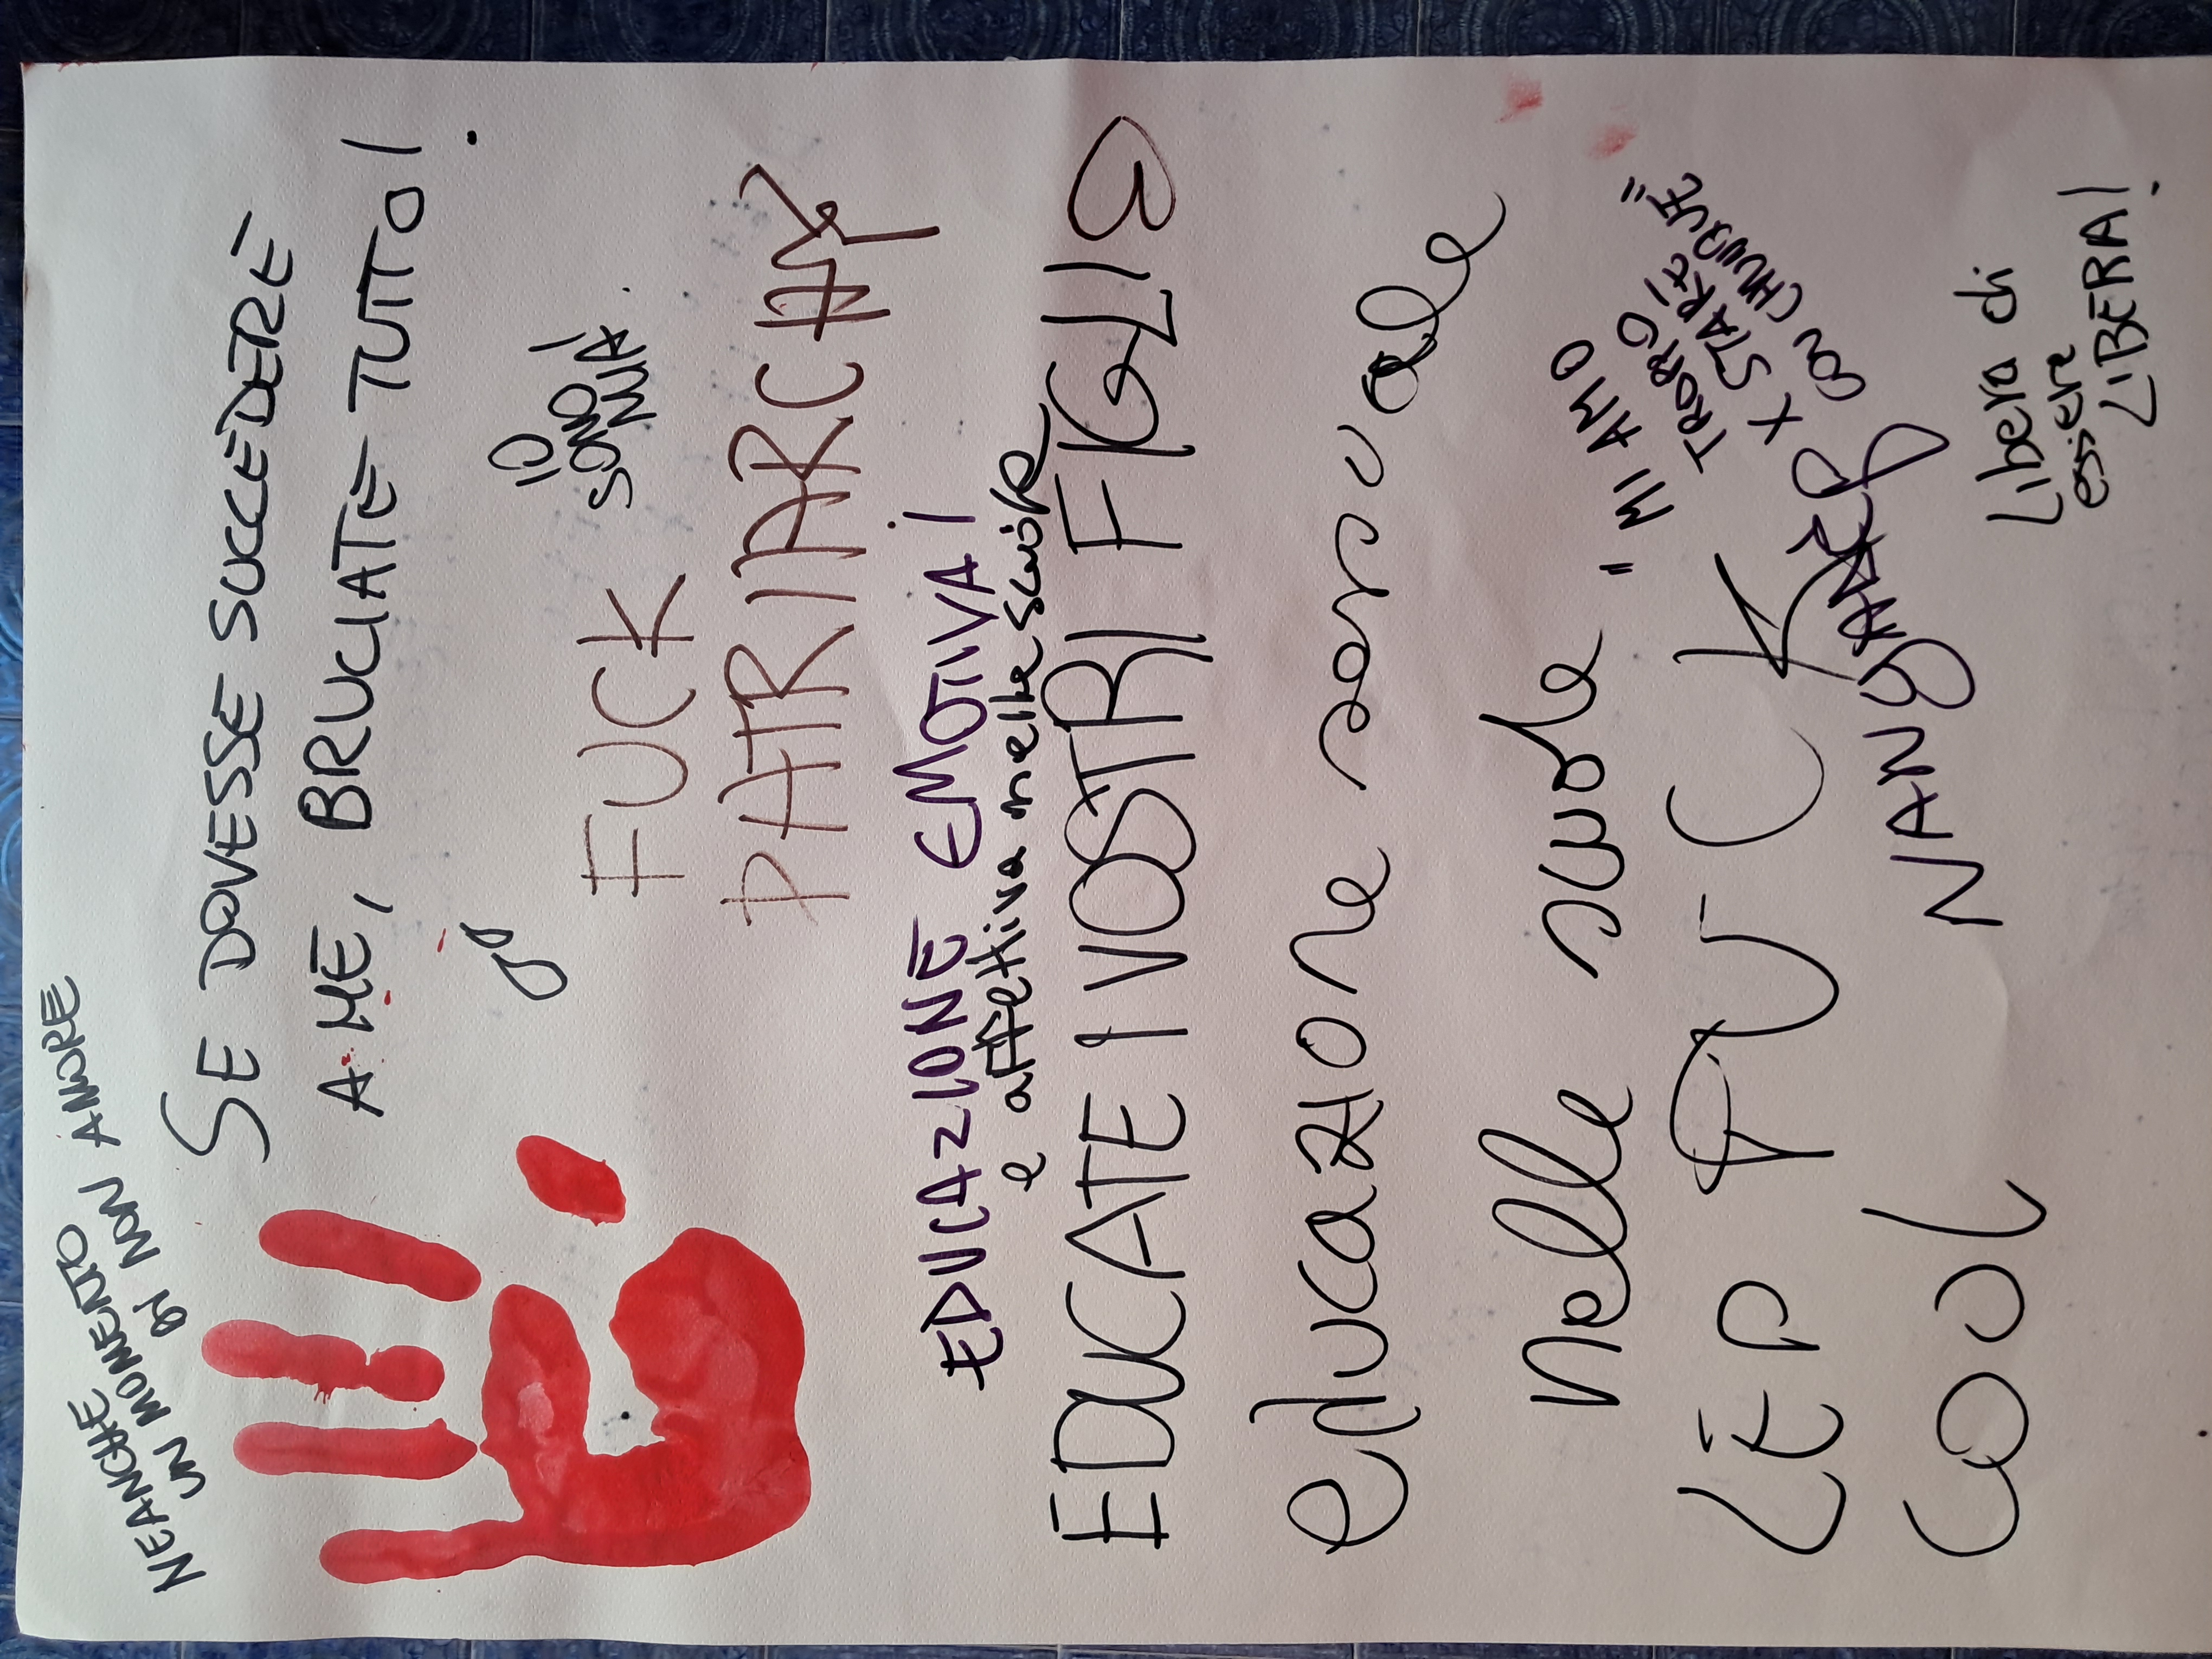 NEANCHE
UN MOMENTO
DI NON AMORE
SE DOVESSE SUCCEDERE
A ME, BRUCIATE TUTTO!
IO
SONO
MIA!
FUCK
PATRIARCHY
EDUCAZIONE EMOTIVA!
e affettiva nelle scuole
EDUCATE I VOSTRI FIGLI
educazione sessuale
nelle scuole
"MI AMO
TROPPO
X STARE
CON CHIUNQUE"
Libera di
essere
LIBERA!